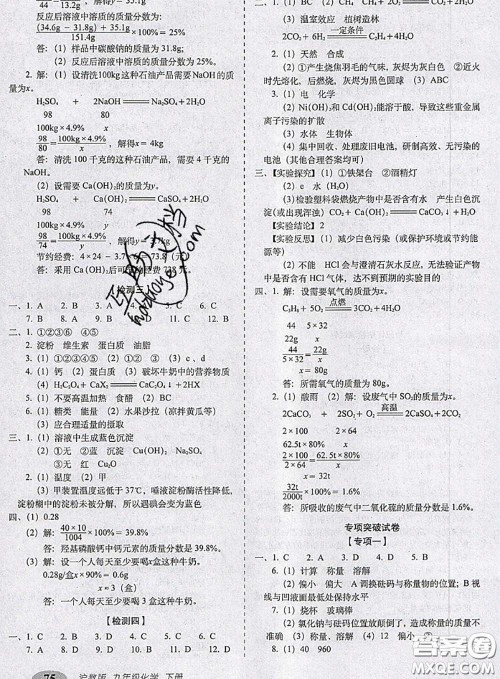 44 13.2g
反应后溶液中溶质的质量分数为
(34.6g - 31.8g) + 35.1g
151.4g ×100%=25%
答：(1) 样品中碳酸钠的质量为31.8g;
(2) 反应后溶液中溶质的质量分数为25%。
2. 解：(1) 设清洗100kg这种石油产品需要NaOH的质量为x。
H₂SO₄ + 2NaOH══Na₂SO₄+2H₂O
98 80
100kg×4.9% x
98/80 = 100kg×4.9%/x，解得x=4kg
答：清洗100千克的这种石油产品，需要4千克的NaOH。
(2) 设需要Ca(OH)₂的质量为y。
H₂SO₄+Ca(OH)₂══CaSO₄+2H₂O
98 74
100kg×4.9% y
98/74 = 100kg×4.9%/y，解得y=3.7kg
节约经费：4×24-3.7×6=73.8(元)
答：采用Ca(OH)₂后可节约经费73.8元。
【检测三】
一、1. A 2. B 3. D 4. B 5. C 6. B
7. D 8. B 9. C 10. D 11. A 12. C
二、1. ①②③⑥ ④⑤
2. 淀粉 维生素 蛋白质 油脂
3. (1) ①②③④⑤ (2) ③ (3) c、d
4. (1) 钙 (2) 蛋白质 (3) 破坏牛奶中的营养物质
(4) H₂C₂O₄+CaX══CaC₂O₄↓+H₂X
5. (1) 不要高温加热 食醋 (2) BD
6. (1) 糖类 能量 (2) 水果沙拉(凉拌黄瓜等)
(3) 应合理适量的摄取
三、(1) 溶液中生成蓝色沉淀
(2) ①无 ②蓝 沉淀 Cu(OH)₂ Na₂SO₄
(3) ①无 ②蓝 变蓝
(3) 甲装置温度远低于37℃，唾液淀粉酶活性降低，淀粉糊中的淀粉未被分解，所以遇碘会变为蓝色
四、(1) 0.28
(2) 解：40×10/1004 ×100%=39.8%
答：羟基磷酸钙中钙元素的质量分数是39.8%。
(3) 解：设一个人每天至少要喝x盒这种牛奶。
0.28g/盒×90%·x=0.6g
x≈3(盒)
答：一个人每天至少要喝3盒这种牛奶。
【检测四】
一、1. C 2. D 3. A 4. B 5. C 6. D
7. D 8. C 9. A 10. C 11. D 12. B
75 沪教版 九年级化学 下册
(3) 温室效应 植树造林
2CO₂+6H₂ 一定条件 CH₂═CH₂+4H₂O
2. (1) 天然 合成
(2) ①产生烧焦羽毛的气味，灰烬为灰白色 ②接近火时先熔化，后燃烧，灰烬为黑色圆球 (3) ABC
3. (1) 电 化学
(2) Ni(OH)₂和Cd(OH)₂能溶于酸，导致这些重金属离子向外界环境的扩散
(3) 水体 生物体
(4) 集中回收、处理废旧电池，研制高效、无污染的电池(其他合理答案均可)
三、【实验探究】(1) ①铁架台 ②酒精灯
(2) e 水(H₂O)
(3) 检验塑料袋燃烧产物中是否含有水 产生白色沉淀(或出现浑浊) CO₂+Ca(OH)₂══CaCO₃↓+H₂O
【实验结论】2
【实验反思】(1) 减少白色污染(或减少对环境的污染或节约能源等)
(2) 不能 HCl会与澄清石灰水反应，无法证明产物中是否含有HCl气体，达不到预期的实验目的
四、1. 解：设需要氧气的质量为x。
C₃H₈+5O₂ 点燃 3CO₂+4H₂O
44 5×32
22g x
44/22g = 5×32/x
x=80g
答：所需氧气的质量为80g。
2. (1) 酸雨 (2) 解：设废气中SO₂的质量为x。
2CaCO₃ +2SO₂+O₂ 高温 2CaSO₄+2CO₂
2×100 2×64
62.5t×80% x
2×100/2×64 = 62.5t×80%/x
x=32t
32t/2000t ×100%=1.6%
答：所吸收的废气中二氧化硫的质量分数是1.6%。
专项突破试卷
【专项一】
一、1. C 2. D 3. C 4. B 5. C
6. (1) 计算 称量 溶解
(2) 偏小 偏大 A调换砝码与称量物的位置；B视线与凹液面的最低处保持水平
7. (1) 烧杯 玻璃棒
(2) ①氯化钠与砝码位置颠倒 偏小 ②加快溶解
8. (1) 40 960